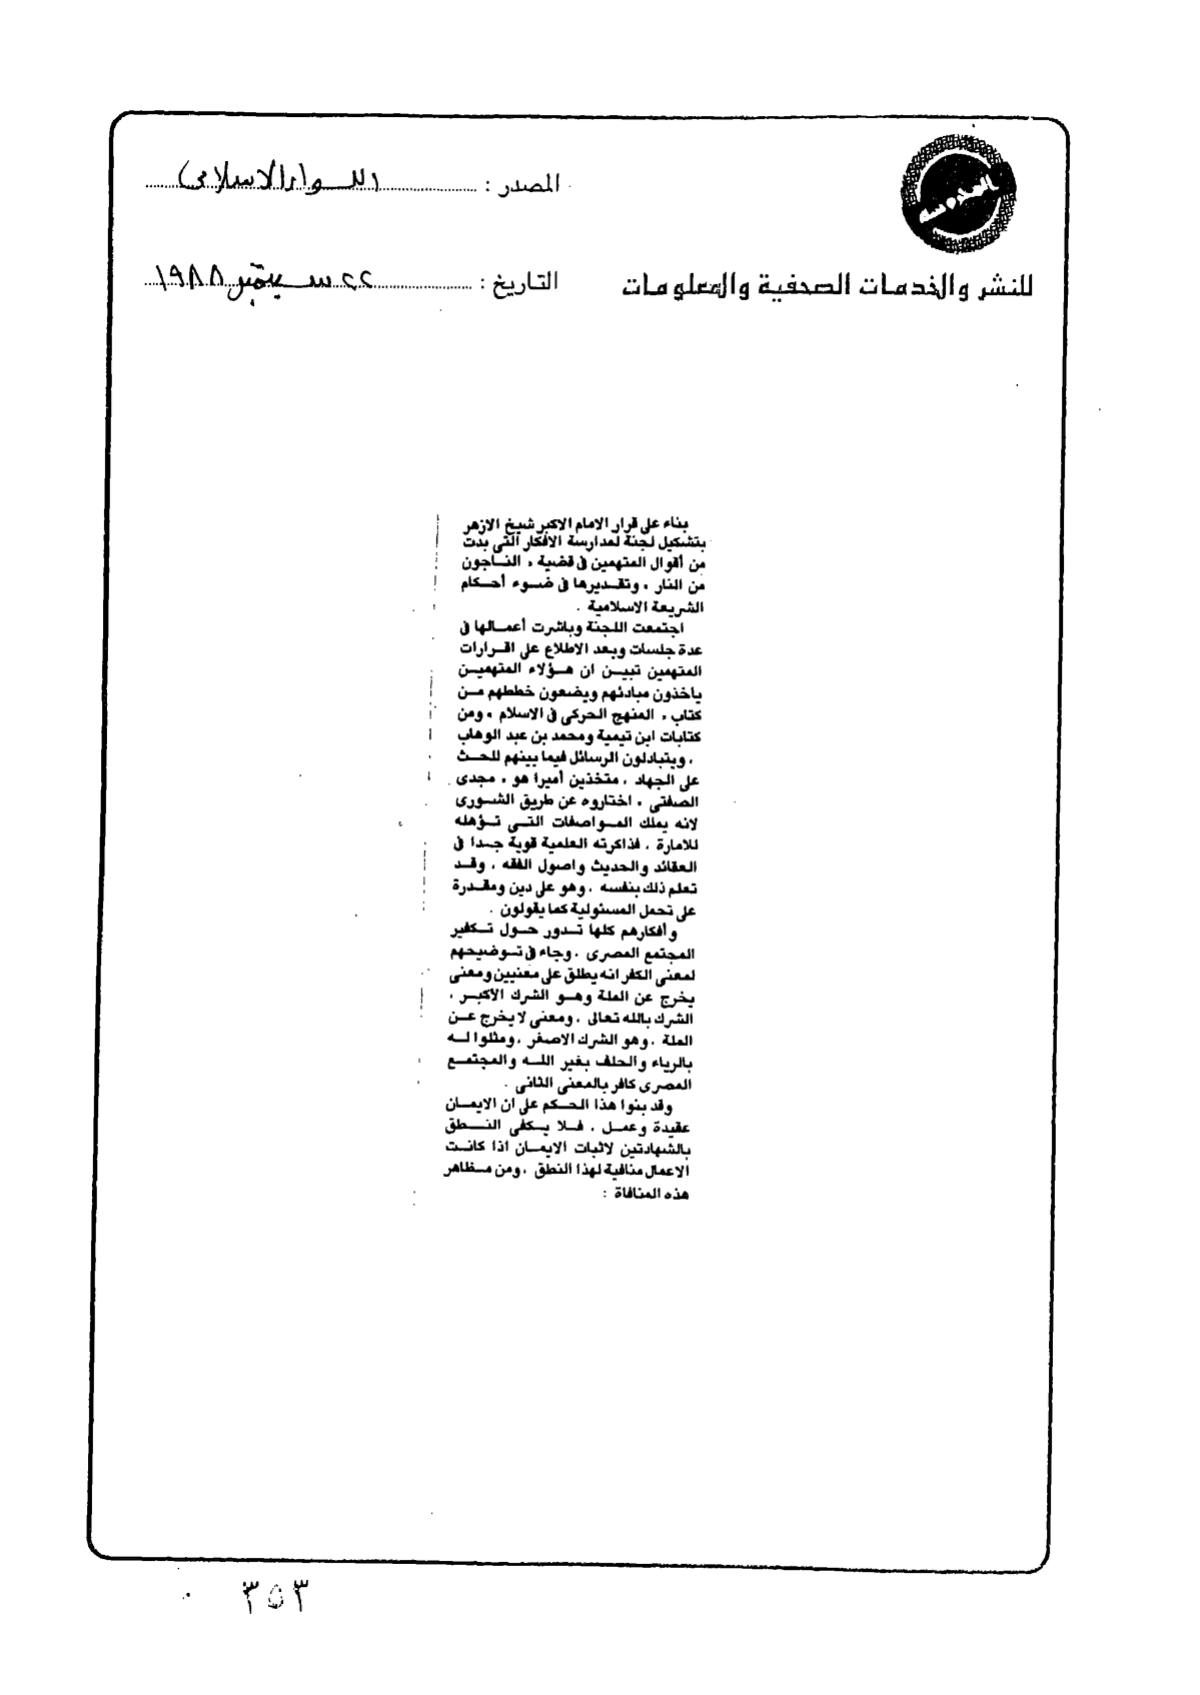 المصدر : اللواء الاسلامى
للنشر والخدمات الصحفية والمعلومات
التاريخ : ٢٢ سبتمبر ١٩٨٨
بناء على قرار الامام الاكبر شيخ الازهر
بتشكيل لجنة لمدارسة الافكار التى بدت
من أقوال المتهمين فى قضية ، الناجون
من النار ، وتقديرها فى ضوء أحكام
الشريعة الاسلامية .
اجتمعت اللجنة وباشرت أعمالها فى
عدة جلسات وبعد الاطلاع على اقرارات
المتهمين تبين ان هؤلاء المتهمين
ياخذون مبادئهم ويضعون خططهم من
كتاب ، المنهج الحركى فى الاسلام ، ومن
كتابات ابن تيمية ومحمد بن عبد الوهاب
، ويتبادلون الرسائل فيما بينهم للحث
على الجهاد ، متخذين أميرا هو ، مجدى
الصفتى ، اختاروه عن طريق الشورى
لانه يملك المواصفات التى تؤهله
للامارة ، فذاكرته العلمية قوية جدا فى
العقائد والحديث واصول الفقه ، وقد
تعلم ذلك بنفسه ، وهو على دين ومقدرة
على تحمل المسئولية كما يقولون .
وأفكارهم كلها تدور حول تكفير
المجتمع المصرى ، وجاء فى توضيحهم
لمعنى الكفر انه يطلق على معنيين ومعنى
يخرج عن الملة وهو الشرك الأكبر ،
الشرك بالله تعالى ، ومعنى لا يخرج عن
الملة ، وهو الشرك الاصغر ، ومثلوا له
بالرياء والحلف بغير الله والمجتمع
المصرى كافر بالمعنى الثانى .
وقد بنوا هذا الحكم على ان الايمان
عقيدة وعمل ، فلا يكفى النطق
بالشهادتين لاثبات الايمان اذا كانت
الاعمال منافية لهذا النطق ، ومن مظاهر
هذه المنافاة :
٣٥٣